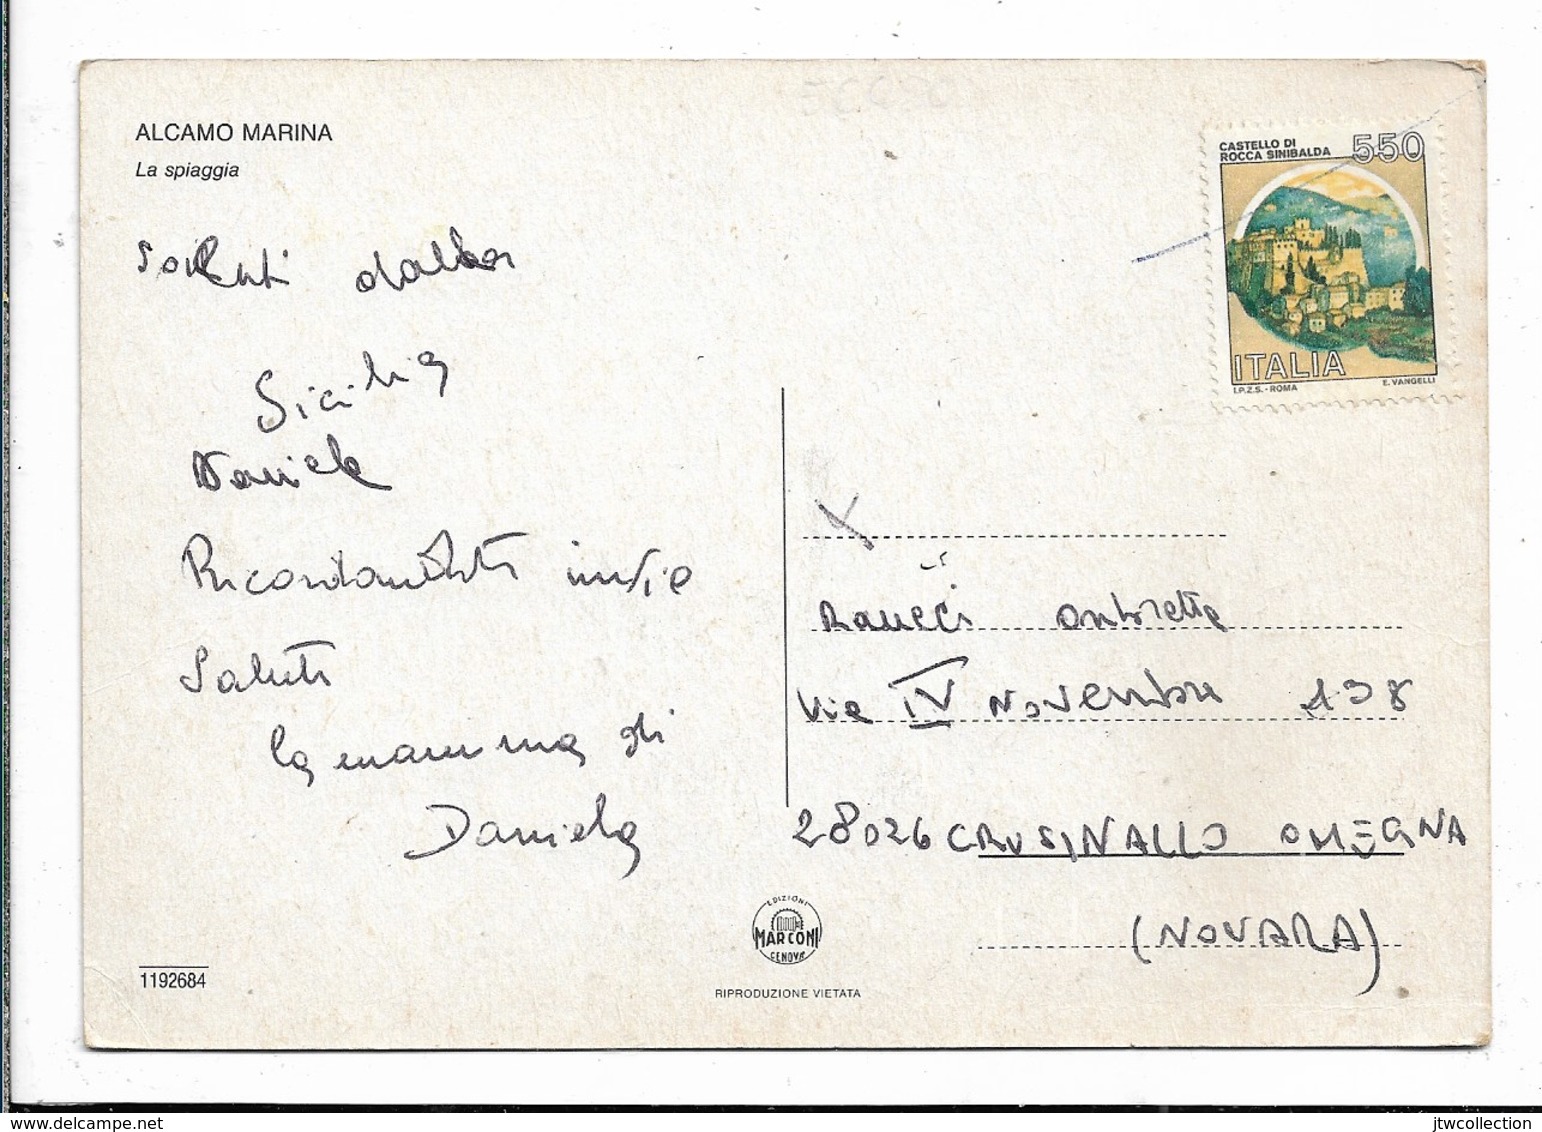 ALCAMO MARINA
La spiaggia
CASTELLO DI
ROCCA SINIBALDA
550
ITALIA
I.P.Z.S. - ROMA
E. VANGELLI
Saluti dalla
Sicilia
Daniela
Ricordandoti invio
Saluti
la mamma di
Daniela
Raucci Ombretta
Via IV Novembre 138
28026 CRUSINALLO OMEGNA
(NOVARA)
EDIZIONI
MARCONI
GENOVA
RIPRODUZIONE VIETATA
1192684
delcampe.net
jtwcollection